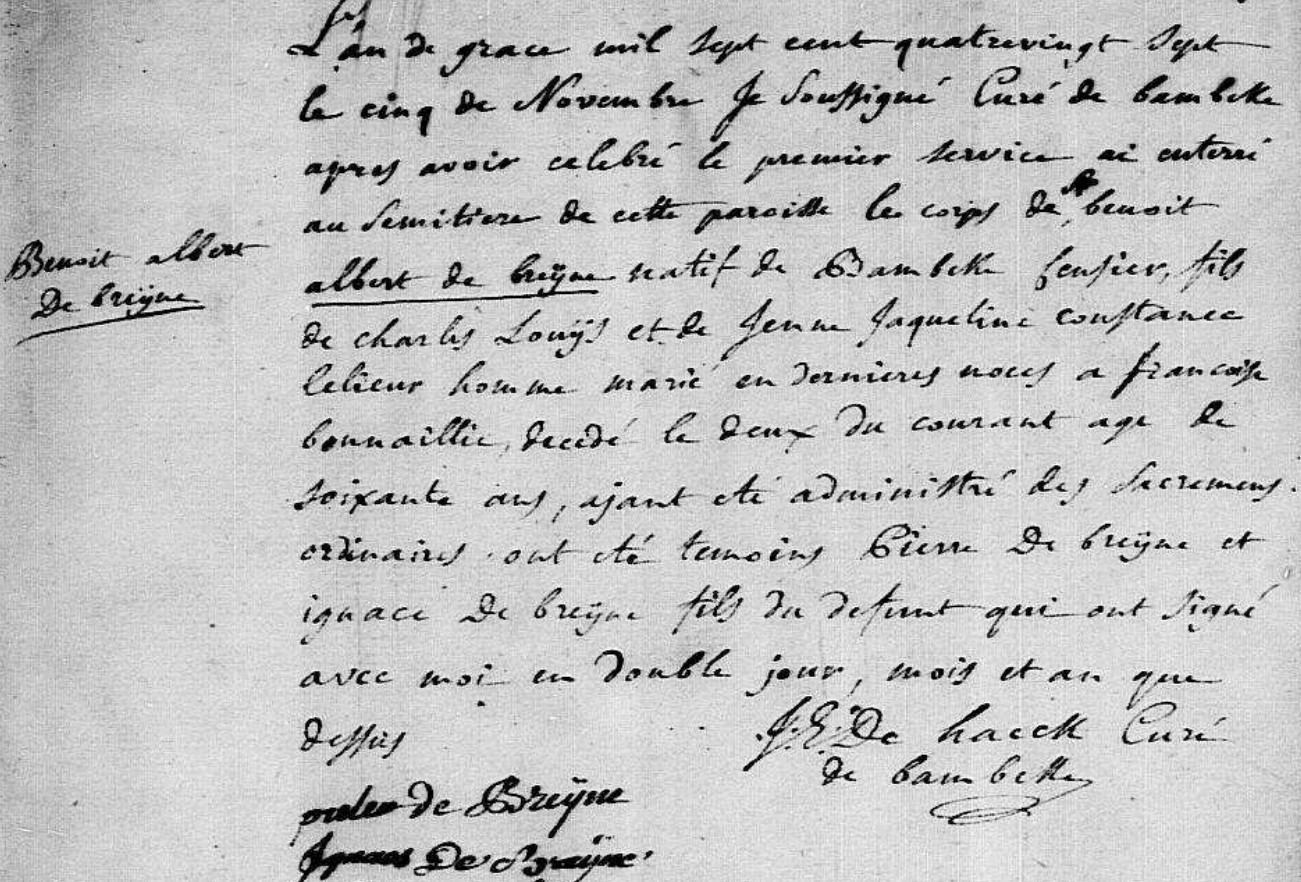 L'an de grace mil sept cent quatrevingt sept
le cinq de Novembre Je Soussigné Curé de bambeke
apres avoir celebré le premier service ai enterré
au Semitiere de cette paroisse le corps de Sr benoit
Benoit albert
De breÿne
albert de breÿne natif de Bambeke fensier, fils
de charles Louÿs et de Jenne Jaqueline constance
lelieur homme marié en dernieres noces a francoise
bonnaillie, decedé le deux du courant age de
soixante ans, ajant eté administré des sacremens
ordinaires ont eté temoins Pierre De breÿne et
ignace De breÿne fils du defunt qui ont signé
avec moi en double jour, mois et an que
dessus
J: E: De haeck Curé
de bambeke
de Breÿne
Ignaes De Breÿne